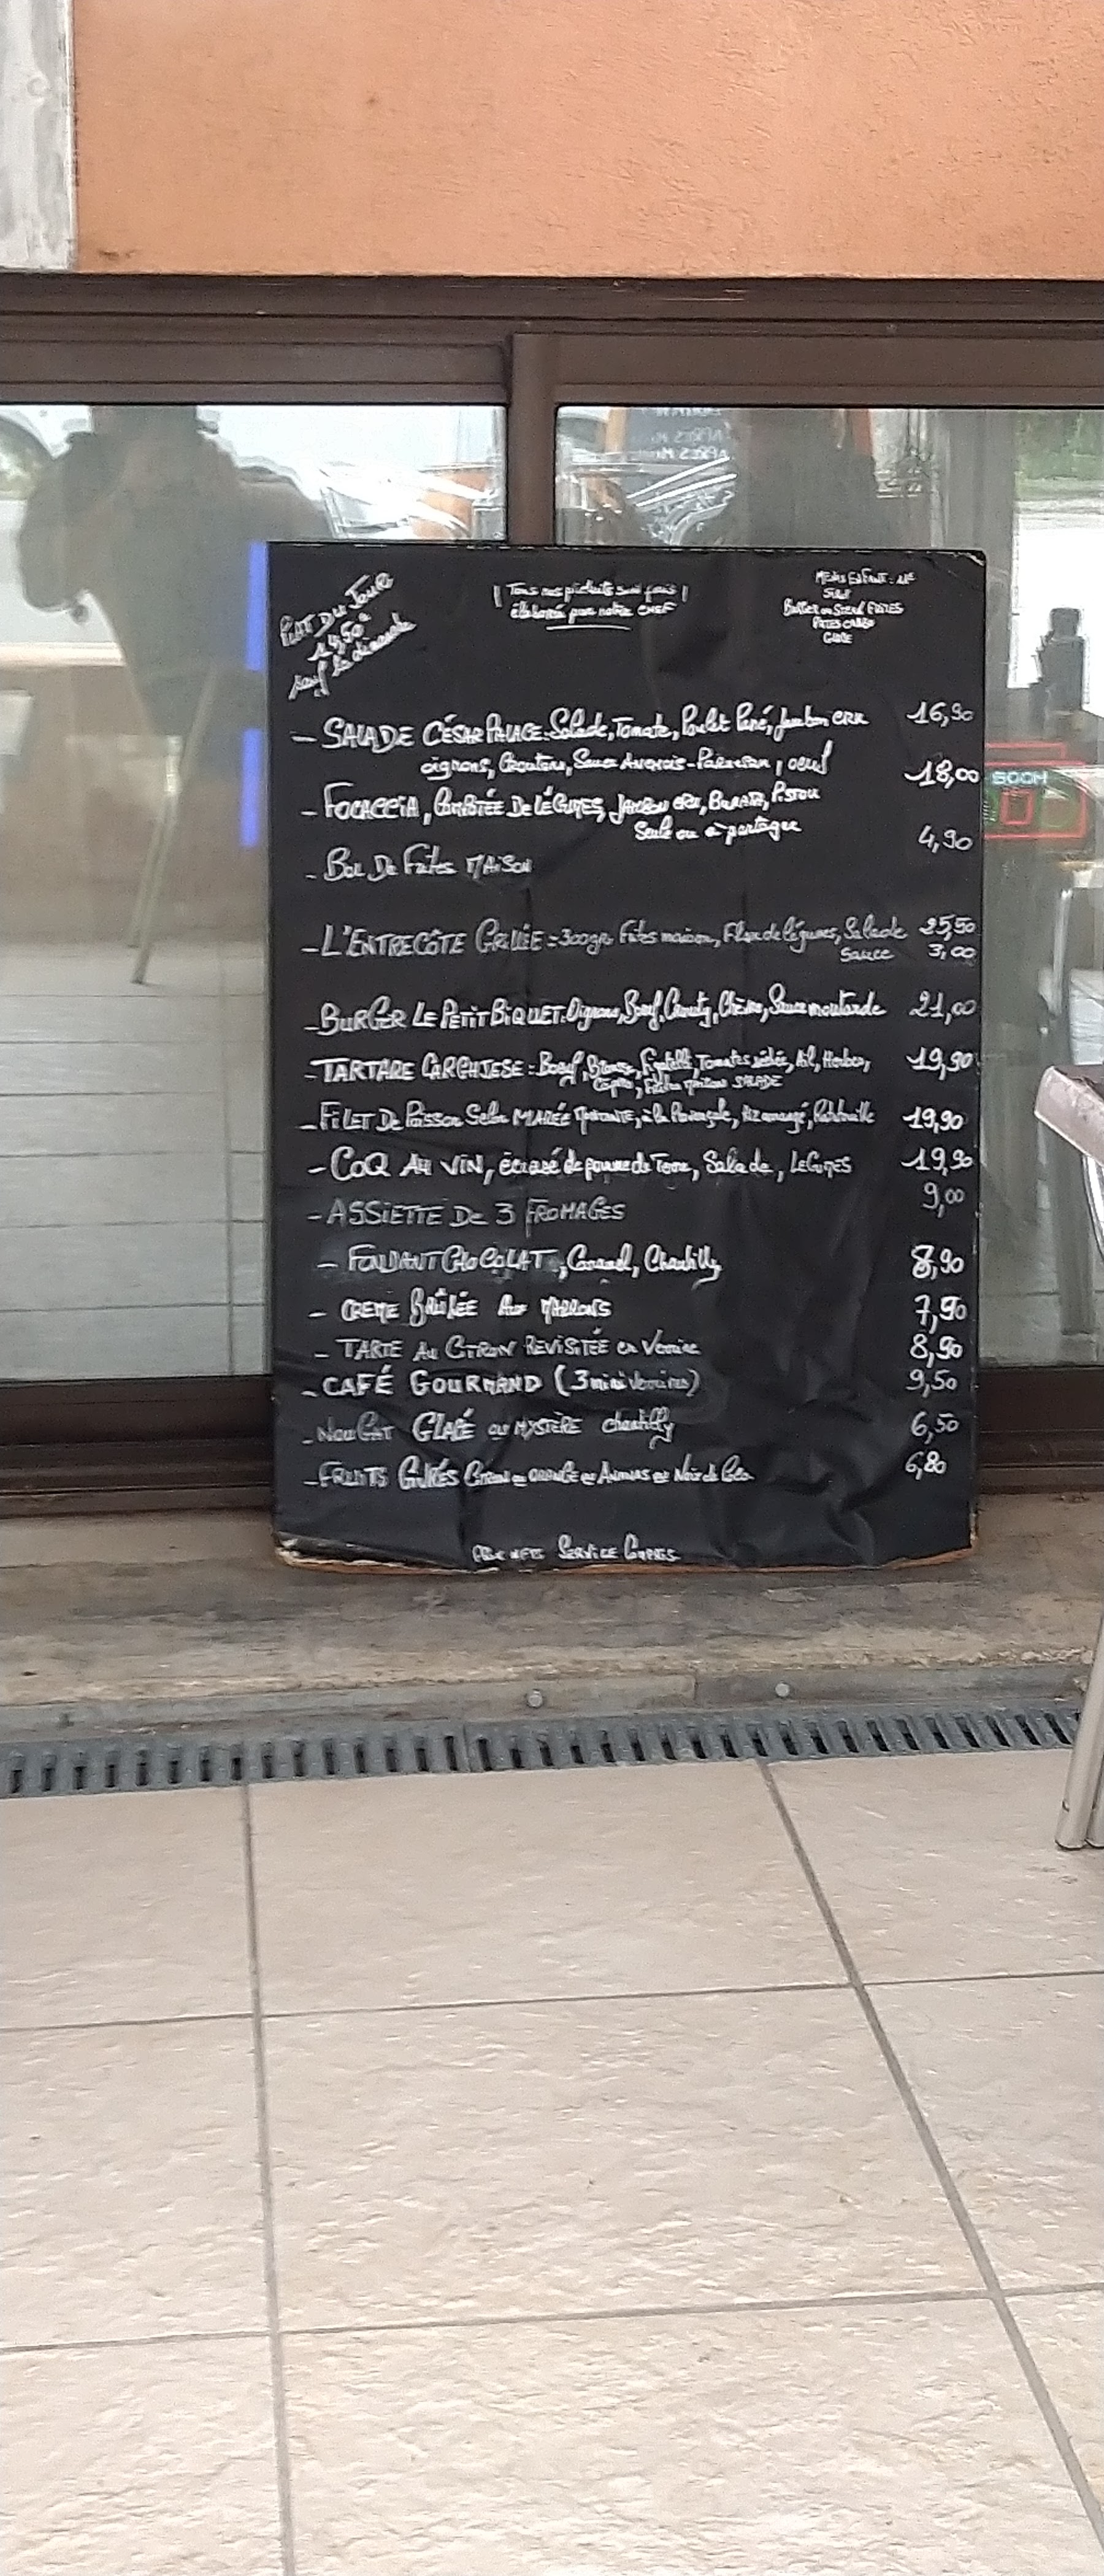 PLAT DU JOUR
14,50€
sauf le dimanche
Tous nos produits sont frais
élaborés par notre CHEF
MENU ENFANT : 11€
SIROP
BURGER ou STEAK FRITES
PATES CARBO
GLACE
- SALADE CÉSAR PALACE : Salade, Tomate, Poulet Pané, Jambon CRU 16,90
oignons, Croutons, Sauce ANCHOIS - PARMESAN, oeuf
- FOCACCIA, COMPOTÉE DE LÉGUMES, JAMBON CRU, BURRATA, PISTOU 18,00
Seule ou à partager
- BOL DE Frites MAISON 4,90
- L'ENTRECÔTE GRILLÉE : 300gr Frites maison, Flan de légumes, Salade 25,50
Sauce 3,00
- BURGER LE PETIT BIQUET : Oignons, Boeuf, Chèvre, Sauce moutarde 21,00
- TARTARE CARGHJESE : Boeuf, Figatelli, Tomates séchés, Ail, Herbes, 19,90
Frites maison SALADE
- FILET DE Poisson Selon MARÉE MONTANTE, à la Provençale, Riz, Ratatouille 19,90
- COQ AU VIN, écrasé de pomme de Terre, Salade, LEGUMES 19,90
- ASSIETTE DE 3 FROMAGES 9,00
- FONDANT CHOCOLAT, Caramel, Chantilly 8,90
- CREME BRÛLÉE AUX MARRONS 7,90
- TARTE AU CITRON REVISITÉE en Verrine 8,90
- CAFÉ GOURMAND (3 mini verrines) 9,50
- NOUGAT GLACÉ ou MYSTÈRE chantilly 6,50
- FRUITS GIVRÉS CITRON ou ORANGE ou ANANAS ou Noix de Coco 6,80
PRIX NETS SERVICE COMPRIS
SOCH